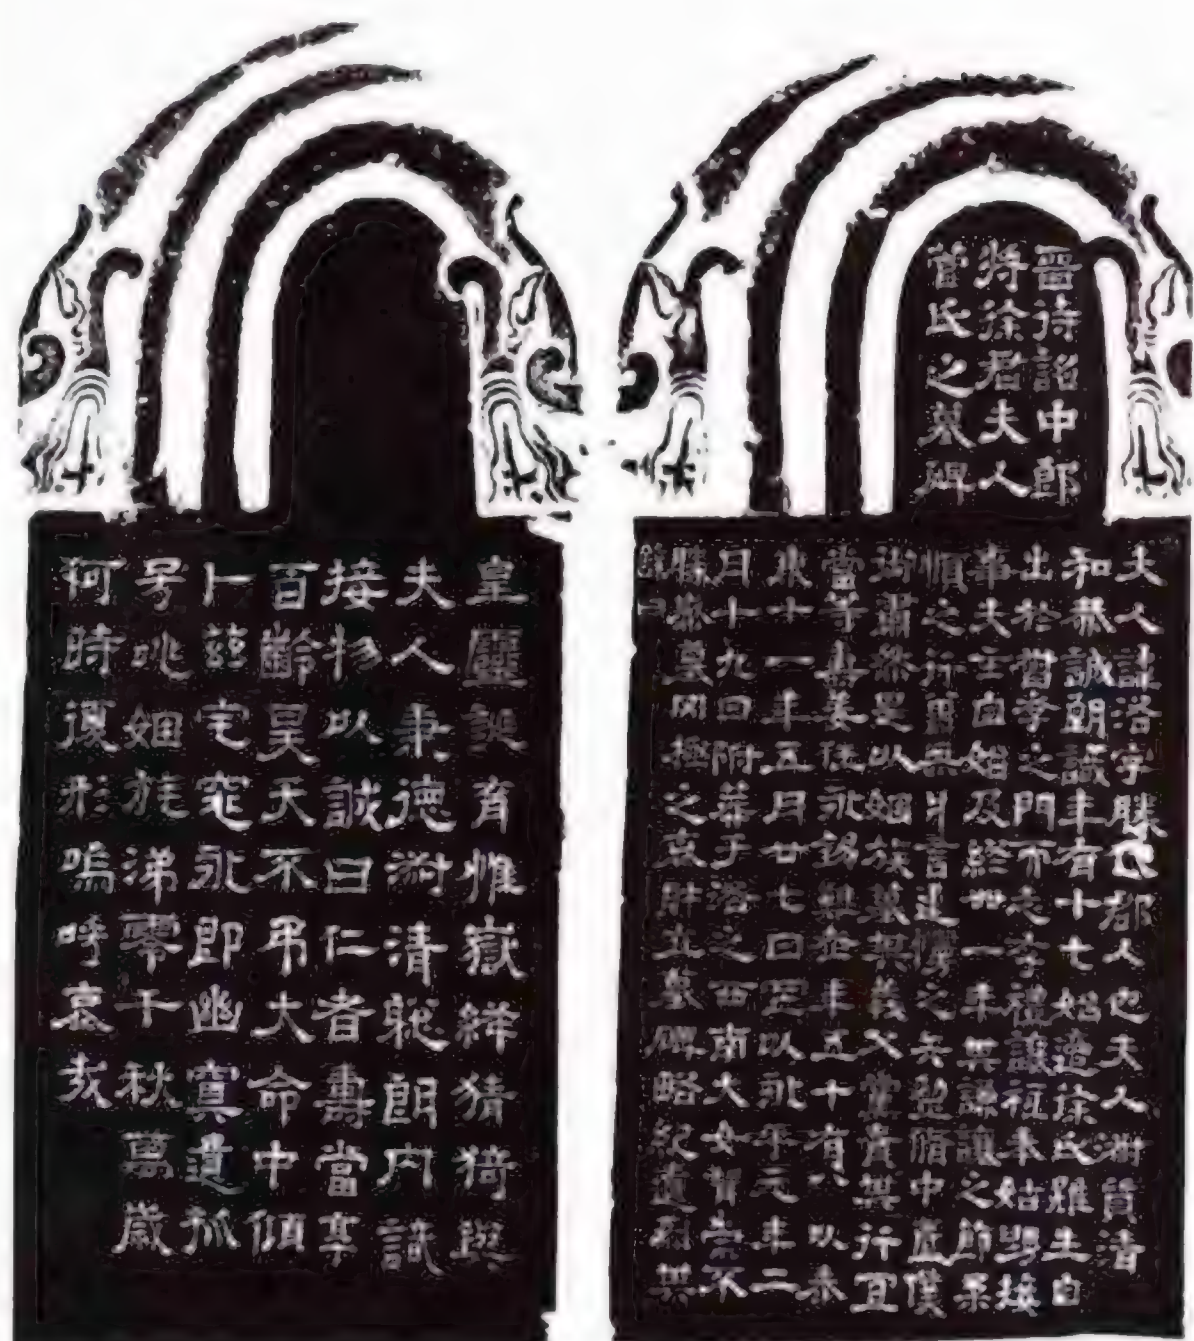 晉待詔中郎
將徐君夫人
菅氏之墓碑
夫人諱洛字勝代郡人也夫人淑質清
和恭誠朗識年有十七始適徐氏雖生自
出於督孝之門而志存禮讓祗奉姑舅接
事夫士自始及終卌一年其謙讓之節柔
順之行曾無片言違慢之矢堅脩中匱僕
御肅然是以姻族慕其義父黨貴其行宜
當等壽姜任永錫難老年五十有八以泰
康十一年五月廿七日薨以永平元年二
月十九日附葬于洛之西南大女賢崇不
勝感慕罔極之哀財立墓碑略紀遺烈其
辭曰
皇靈誕育惟嶽絳精猗與
夫人秉德淑清聡朗內識
接物以誠曰仁者壽當享
百齡昊天不弔大命中傾
卜茲宅窀永即幽冥遺孤
号咷姻族涕零千秋萬歲
何時復形嗚呼哀哉